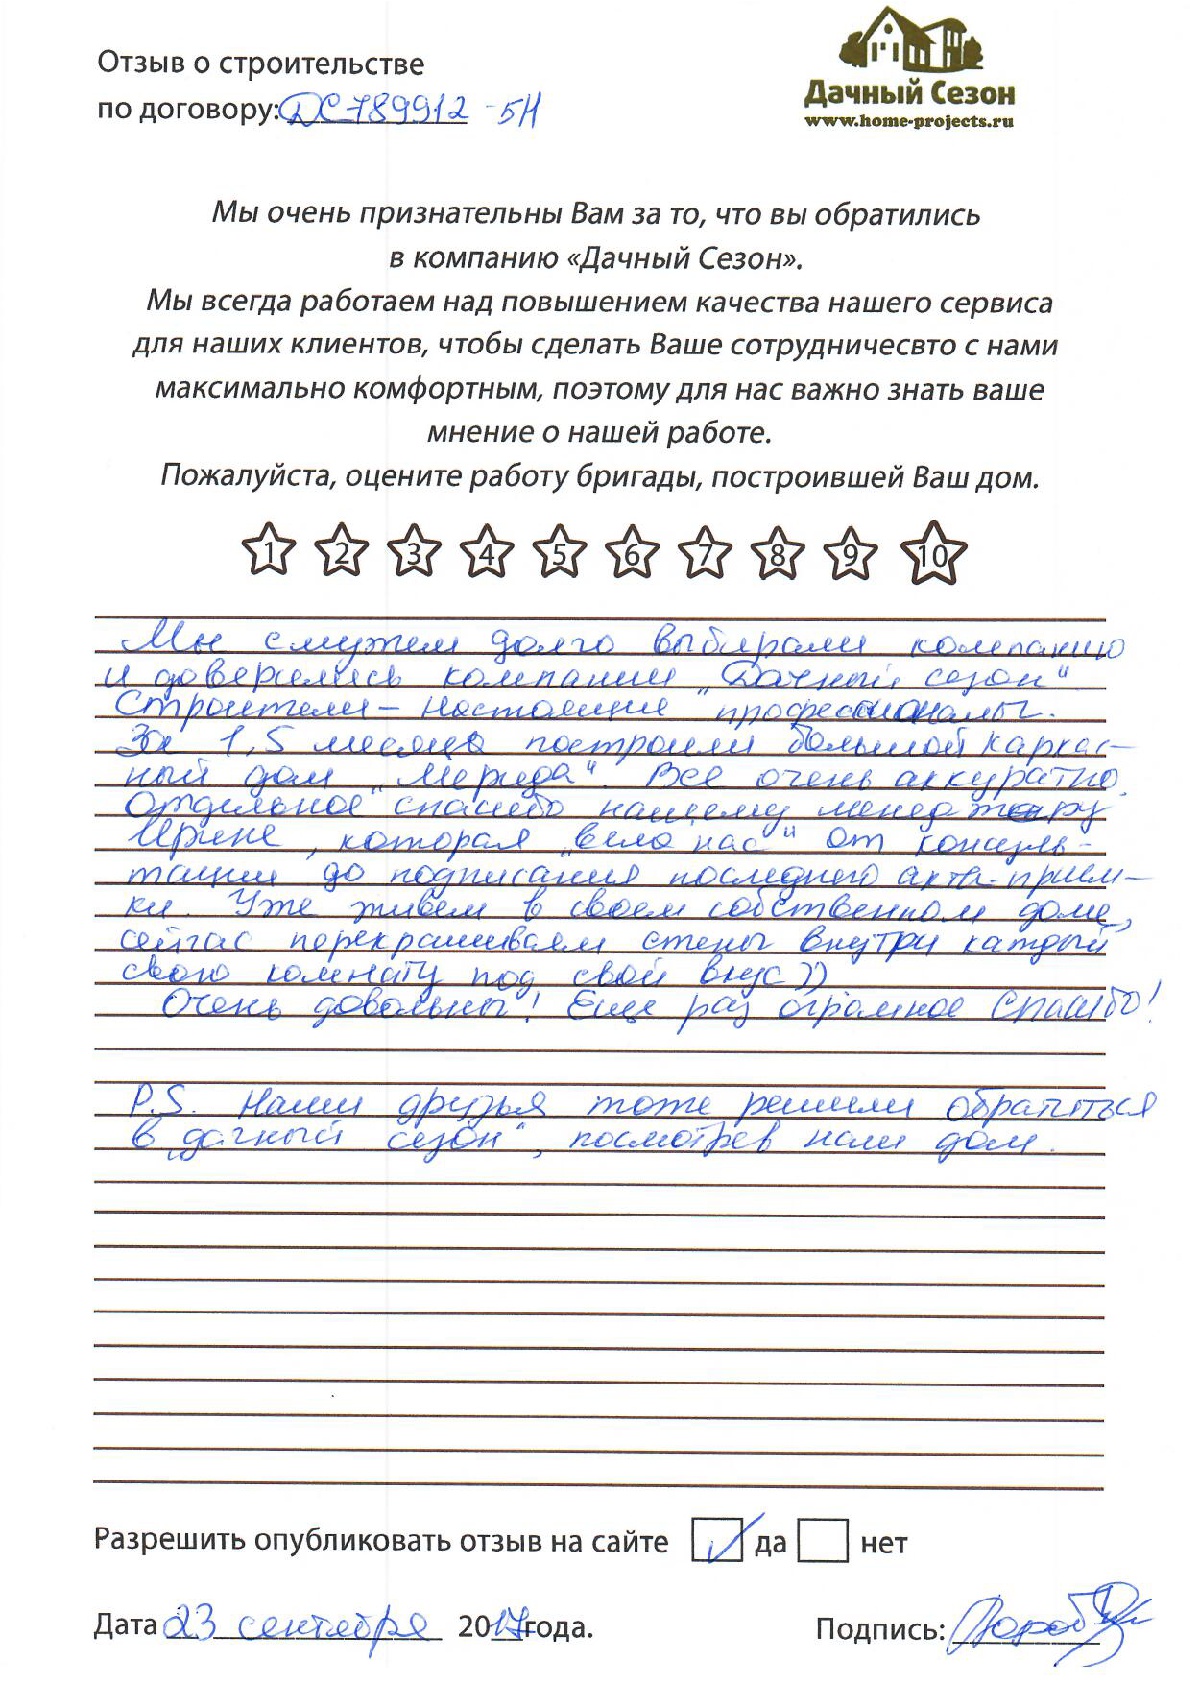 Отзыв о строительстве
по договору: ДС789912-5Н
Дачный Сезон
www.home-projects.ru
Мы очень признательны Вам за то, что вы обратились
в компанию «Дачный Сезон».
Мы всегда работаем над повышением качества нашего сервиса
для наших клиентов, чтобы сделать Ваше сотрудничесвто с нами
максимально комфортным, поэтому для нас важно знать ваше
мнение о нашей работе.
Пожалуйста, оцените работу бригады, построившей Ваш дом.
1 2 3 4 5 6 7 8 9 10
Мы с мужем долго выбирали компанию
и доверились компании „Дачный сезон“.
Строители – настоящие профессионалы.
За 1,5 месяца построили большой каркас-
ный дом „Мерида“. Все очень аккуратно.
Отдельное спасибо нашему менеджеру
Ирине, которая „вела нас“ от консуль-
тации до подписания последнего акта-прием-
ки. Уже живем в своем собственном доме,
сейчас перекрашиваем стены внутри каждый
свою комнату под свой вкус))
Очень довольны! Еще раз огромное Спасибо!
P.S. Наши друзья тоже решили обратиться
в „дачный сезон“, посмотрев наш дом.
Разрешить опубликовать отзыв на сайте да нет
Дата 23 сентября 2017 года. Подпись: